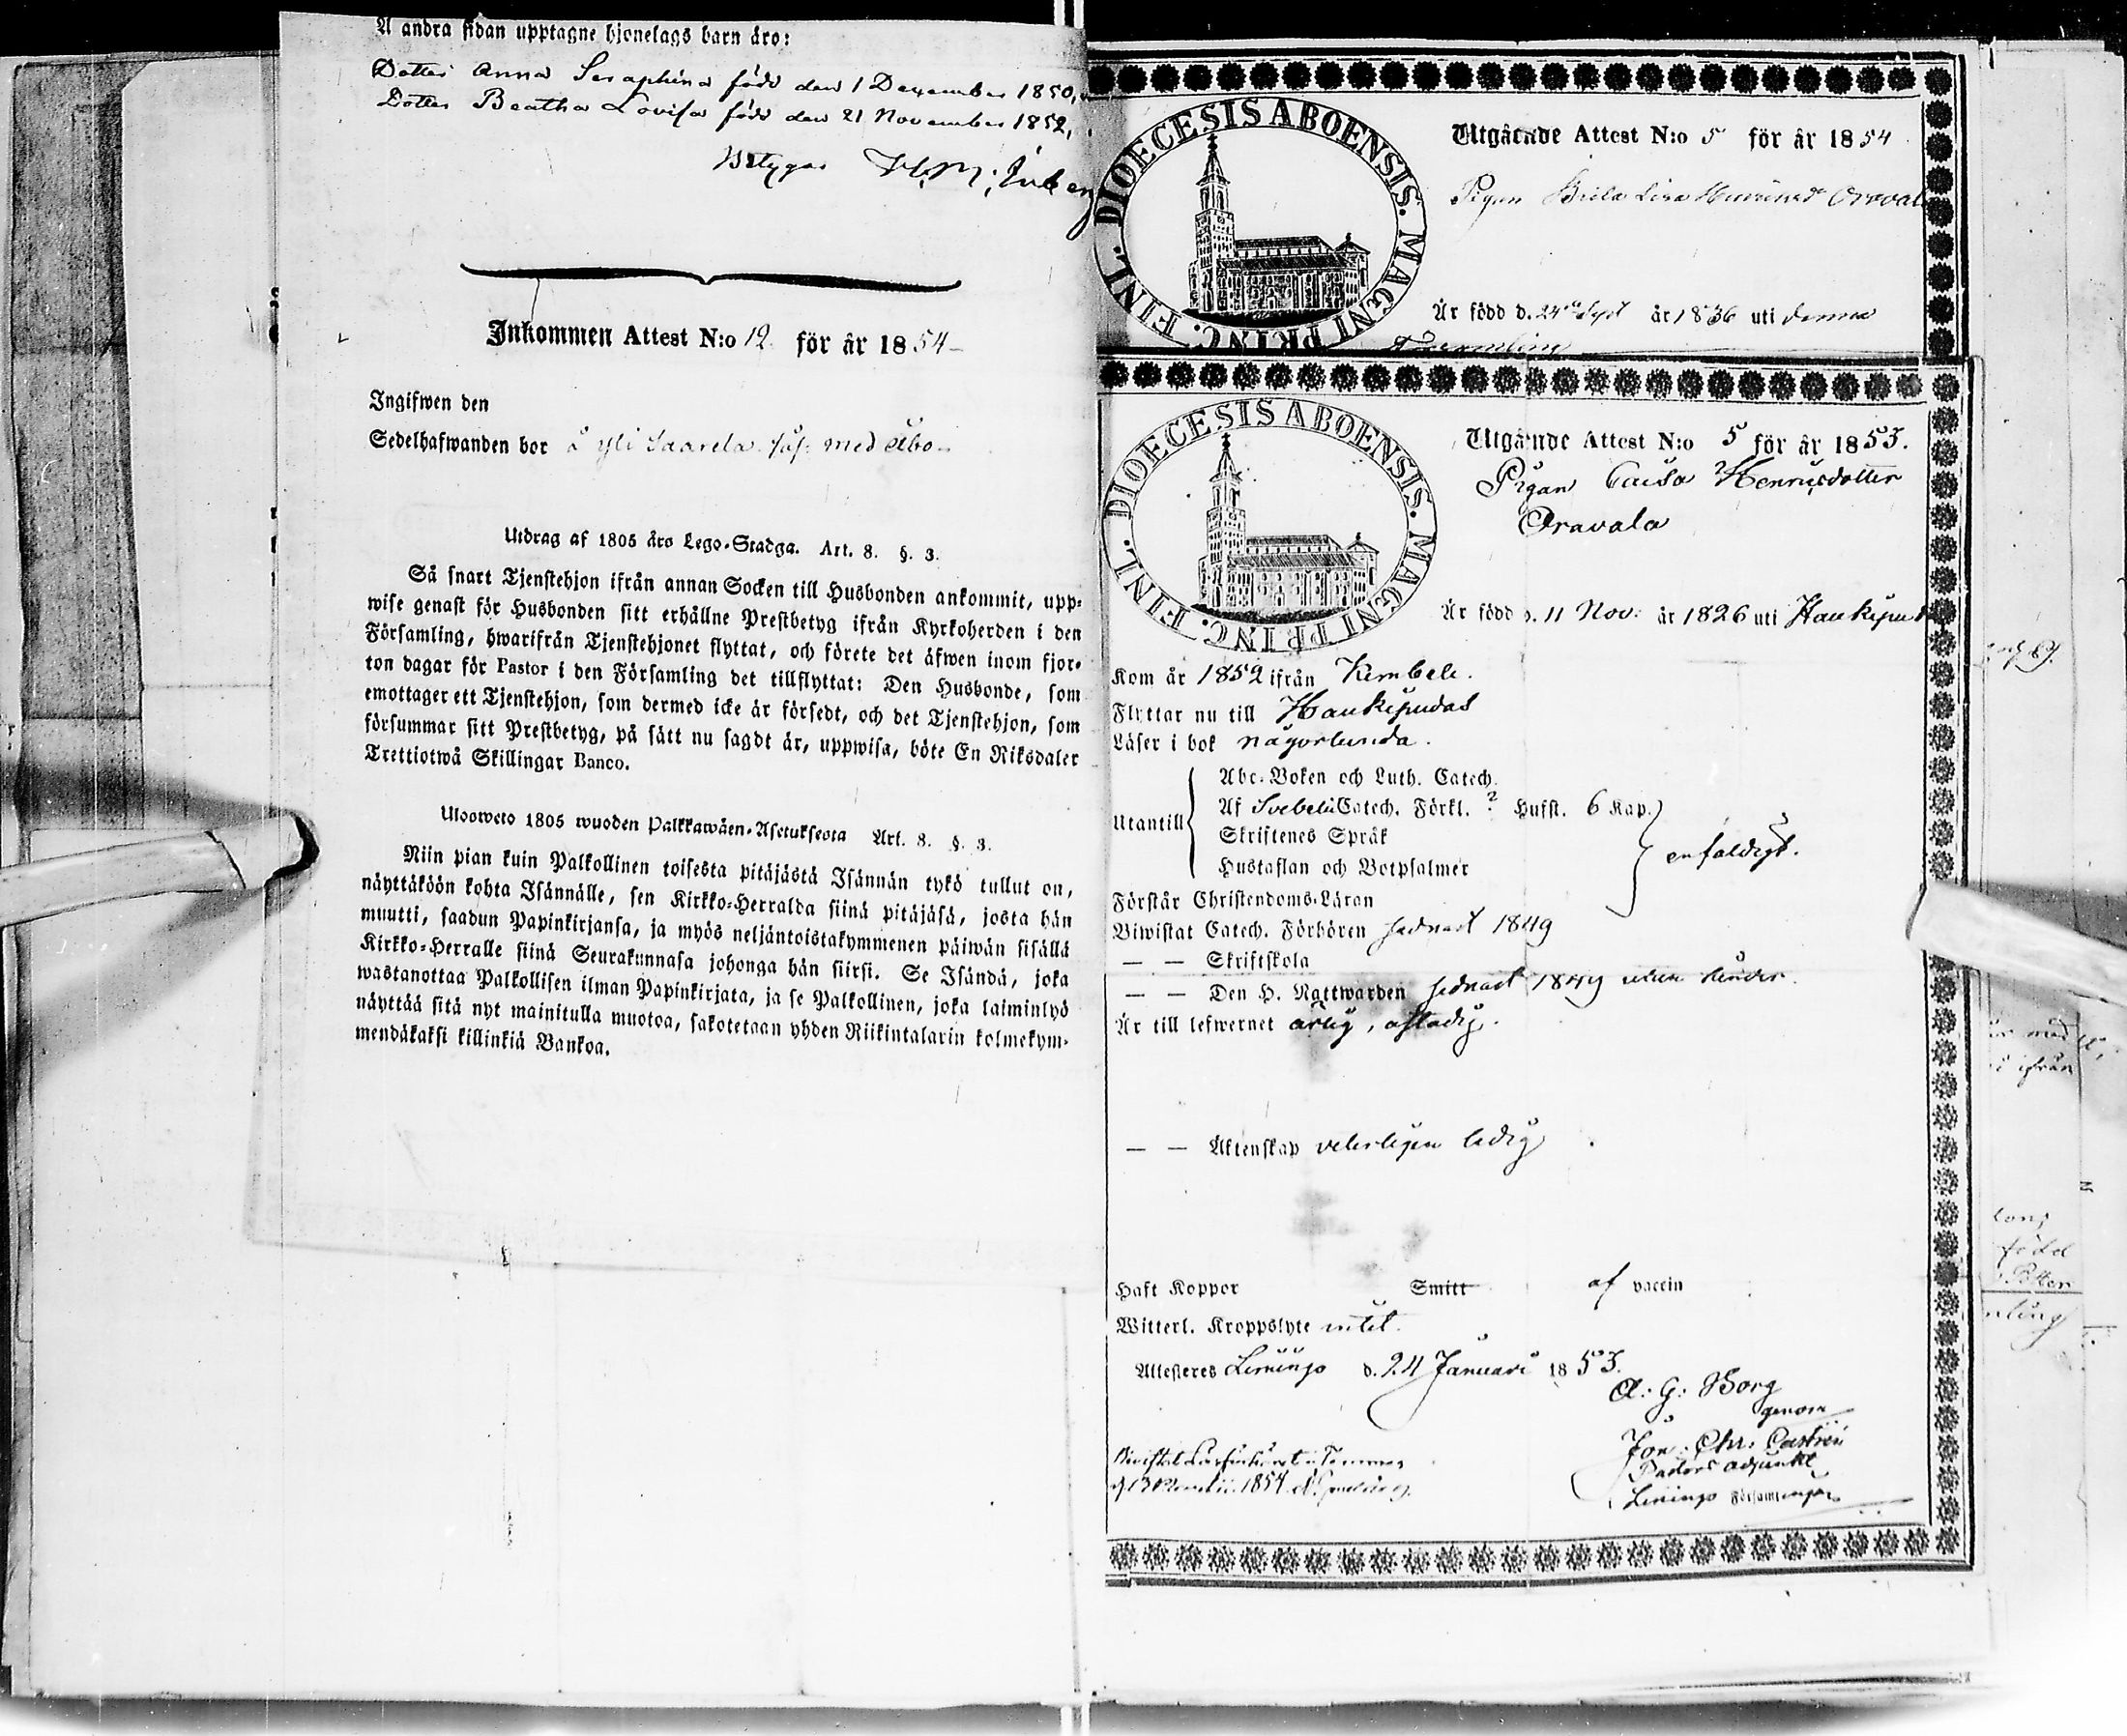 Å andra sidan upptagne hjonelags barn äro:
Dotter Anna Seraphina född den 1 December 1850,
Dotter Beatha Lovisa född den 21 November 1852,
Betygar
Inkommen Attest N:o 12. för år 1854
Ingifwen den
Sedelhafwanden bor å Yli Saarela med Åbo
Utdrag af 1805 års Lego-Stadga. Art. 8. §. 3.
Så snart Tjenstehjon ifrån annan Socken till Husbonden ankommit, upp-
wise genast för Husbonden sitt erhållne Prestbetyg ifrån Kyrkoherden i den
Församling, hwarifrån Tjenstehjonet flyttat, och förete det äfwen inom fjor-
ton dagar för Pastor i den Församling det tillflyttat: Den Husbonde, som
emottager ett Tjenstehjon, som dermed icke är försedt, och det Tjenstehjon, som
försummar sitt Prestbetyg, på sätt nu sagdt är, uppwisa, böte En Riksdaler
Trettiotwå Skillingar Banco.
Ulosweto 1805 wuoden Palkkawäen-Asetuksesta Art. 8. §. 3.
Niin pian kuin Palkollinen toisesta pitäjästä Isännän tykö tullut on,
näyttäköön kohta Isännälle, sen Kirkko-Herralda siinä pitäjäsä, josta hän
muutti, saadun Papinkirjansa, ja myös neljäntoistakymmenen päiwän sisällä
Kirkko-Herralle siinä Seurakunnasa johonga hän siirsi. Se Isändä, joka
wastanottaa Palkollisen ilman Papinkirjata, ja se Palkollinen, joka laiminlyö
näyttää sitä nyt mainitulla muotoa, sakotetaan yhden Riikintalarin kolmekym-
mendäkaksi killinkiä Bankoa.
DIOECESIS ABOENSIS. MAGNI PRINC. FINL.
Utgående Attest N:o 5 för år 1854
Pigan Brita Lisa Oraval
Är född d. 24 Sept år 1836 uti denna
Församling
DIOECESIS ABOENSIS. MAGNI PRINC. FINL.
Utgånde Attest N:o 5 för år 1853.
Pigan Caisa Henricsdotter
Oravala
Är född d. 11 Nov: år 1826 uti Haukipud
Kom år 1852 ifrån Kembele.
Flyttar nu till Haukipudas
Läser i bok någorlunda.
Utantill
Abc-Boken och Luth. Catech.
Af Svebelii Catech. Förkl. ? Hufst. 6 Kap.
Skriftenes Språk
Hustaflan och Botpsalmer
enfaldigt.
Förstår Christendoms-Läran
Biwistat Catech. Förhören sednast 1849
— — Skriftskola
— — Den H. Nattwarden sednast 1849 utan hinder.
Är till lefwernet ärlig,
— — Äktenskap veterligen ledig
Haft Koppor Smitt af vaccin
Witterl. Kroppslyte intet.
Attesteres Limingo d. 24 Januari 1853.
A: G: Borg
genom
Jon: Chr: Castrén
Pastors adjunkt
Limingo Församlingar